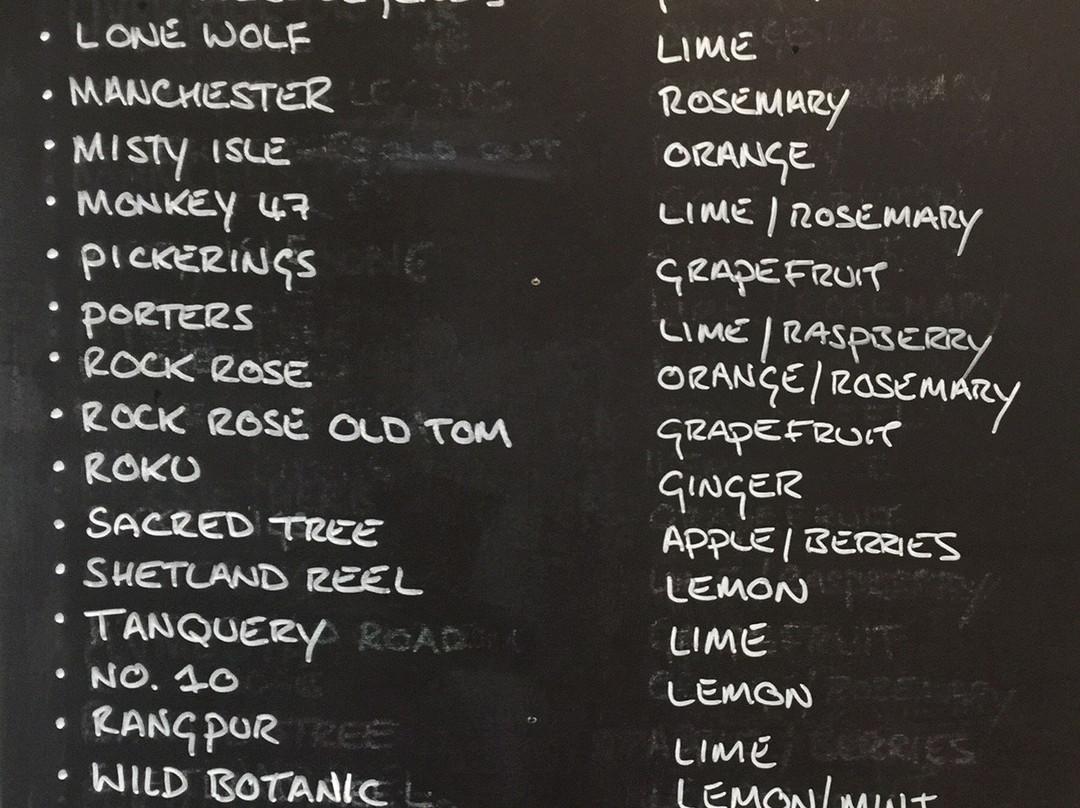 • LONE WOLF LIME
• MANCHESTER ROSEMARY
• MISTY ISLE ORANGE
• MONKEY 47 LIME / ROSEMARY
• PICKERINGS GRAPEFRUIT
• PORTERS LIME / RASPBERRY
• ROCK ROSE ORANGE / ROSEMARY
• ROCK ROSE OLD TOM GRAPEFRUIT
• ROKU GINGER
• SACRED TREE APPLE / BERRIES
• SHETLAND REEL LEMON
• TANQUERY LIME
• NO. 10 LEMON
• RANGPUR LIME
• WILD BOTANIC LEMON/MINT